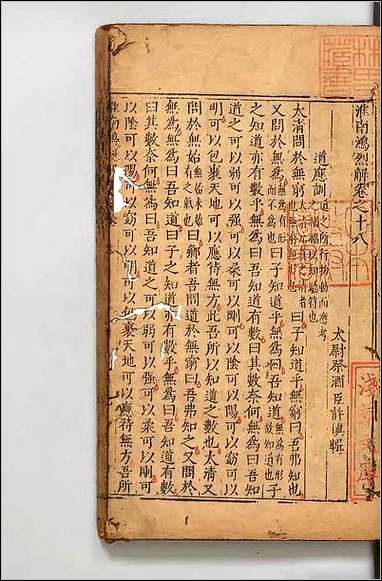 淮南鴻烈解卷之十八
太尉祭酒臣許慎輯
道應訓 道之所行物動而應考之禍福以知驗符也
太清問於無窮 曰子知道乎無窮曰吾弗知也
又問於無為 曰子知道乎無為曰吾知道
之知道亦有數乎無為曰吾知道有數曰其數奈何無為曰吾知
道之可以弱可以強可以柔可以剛可以陰可以陽可以窈可以
明可以包裹天地可以應待無方此吾所以知道之數也太清又
問於無始 曰鄉者吾問道於無窮曰吾弗知之又問於
無為無為曰吾知道曰子之知道亦有數乎無為曰吾知道有數
曰其數奈何無為曰吾知道之可以弱可以強可以柔可以剛可
以陰可以陽可以窈可以明可以包裹天地可以應待無方吾所